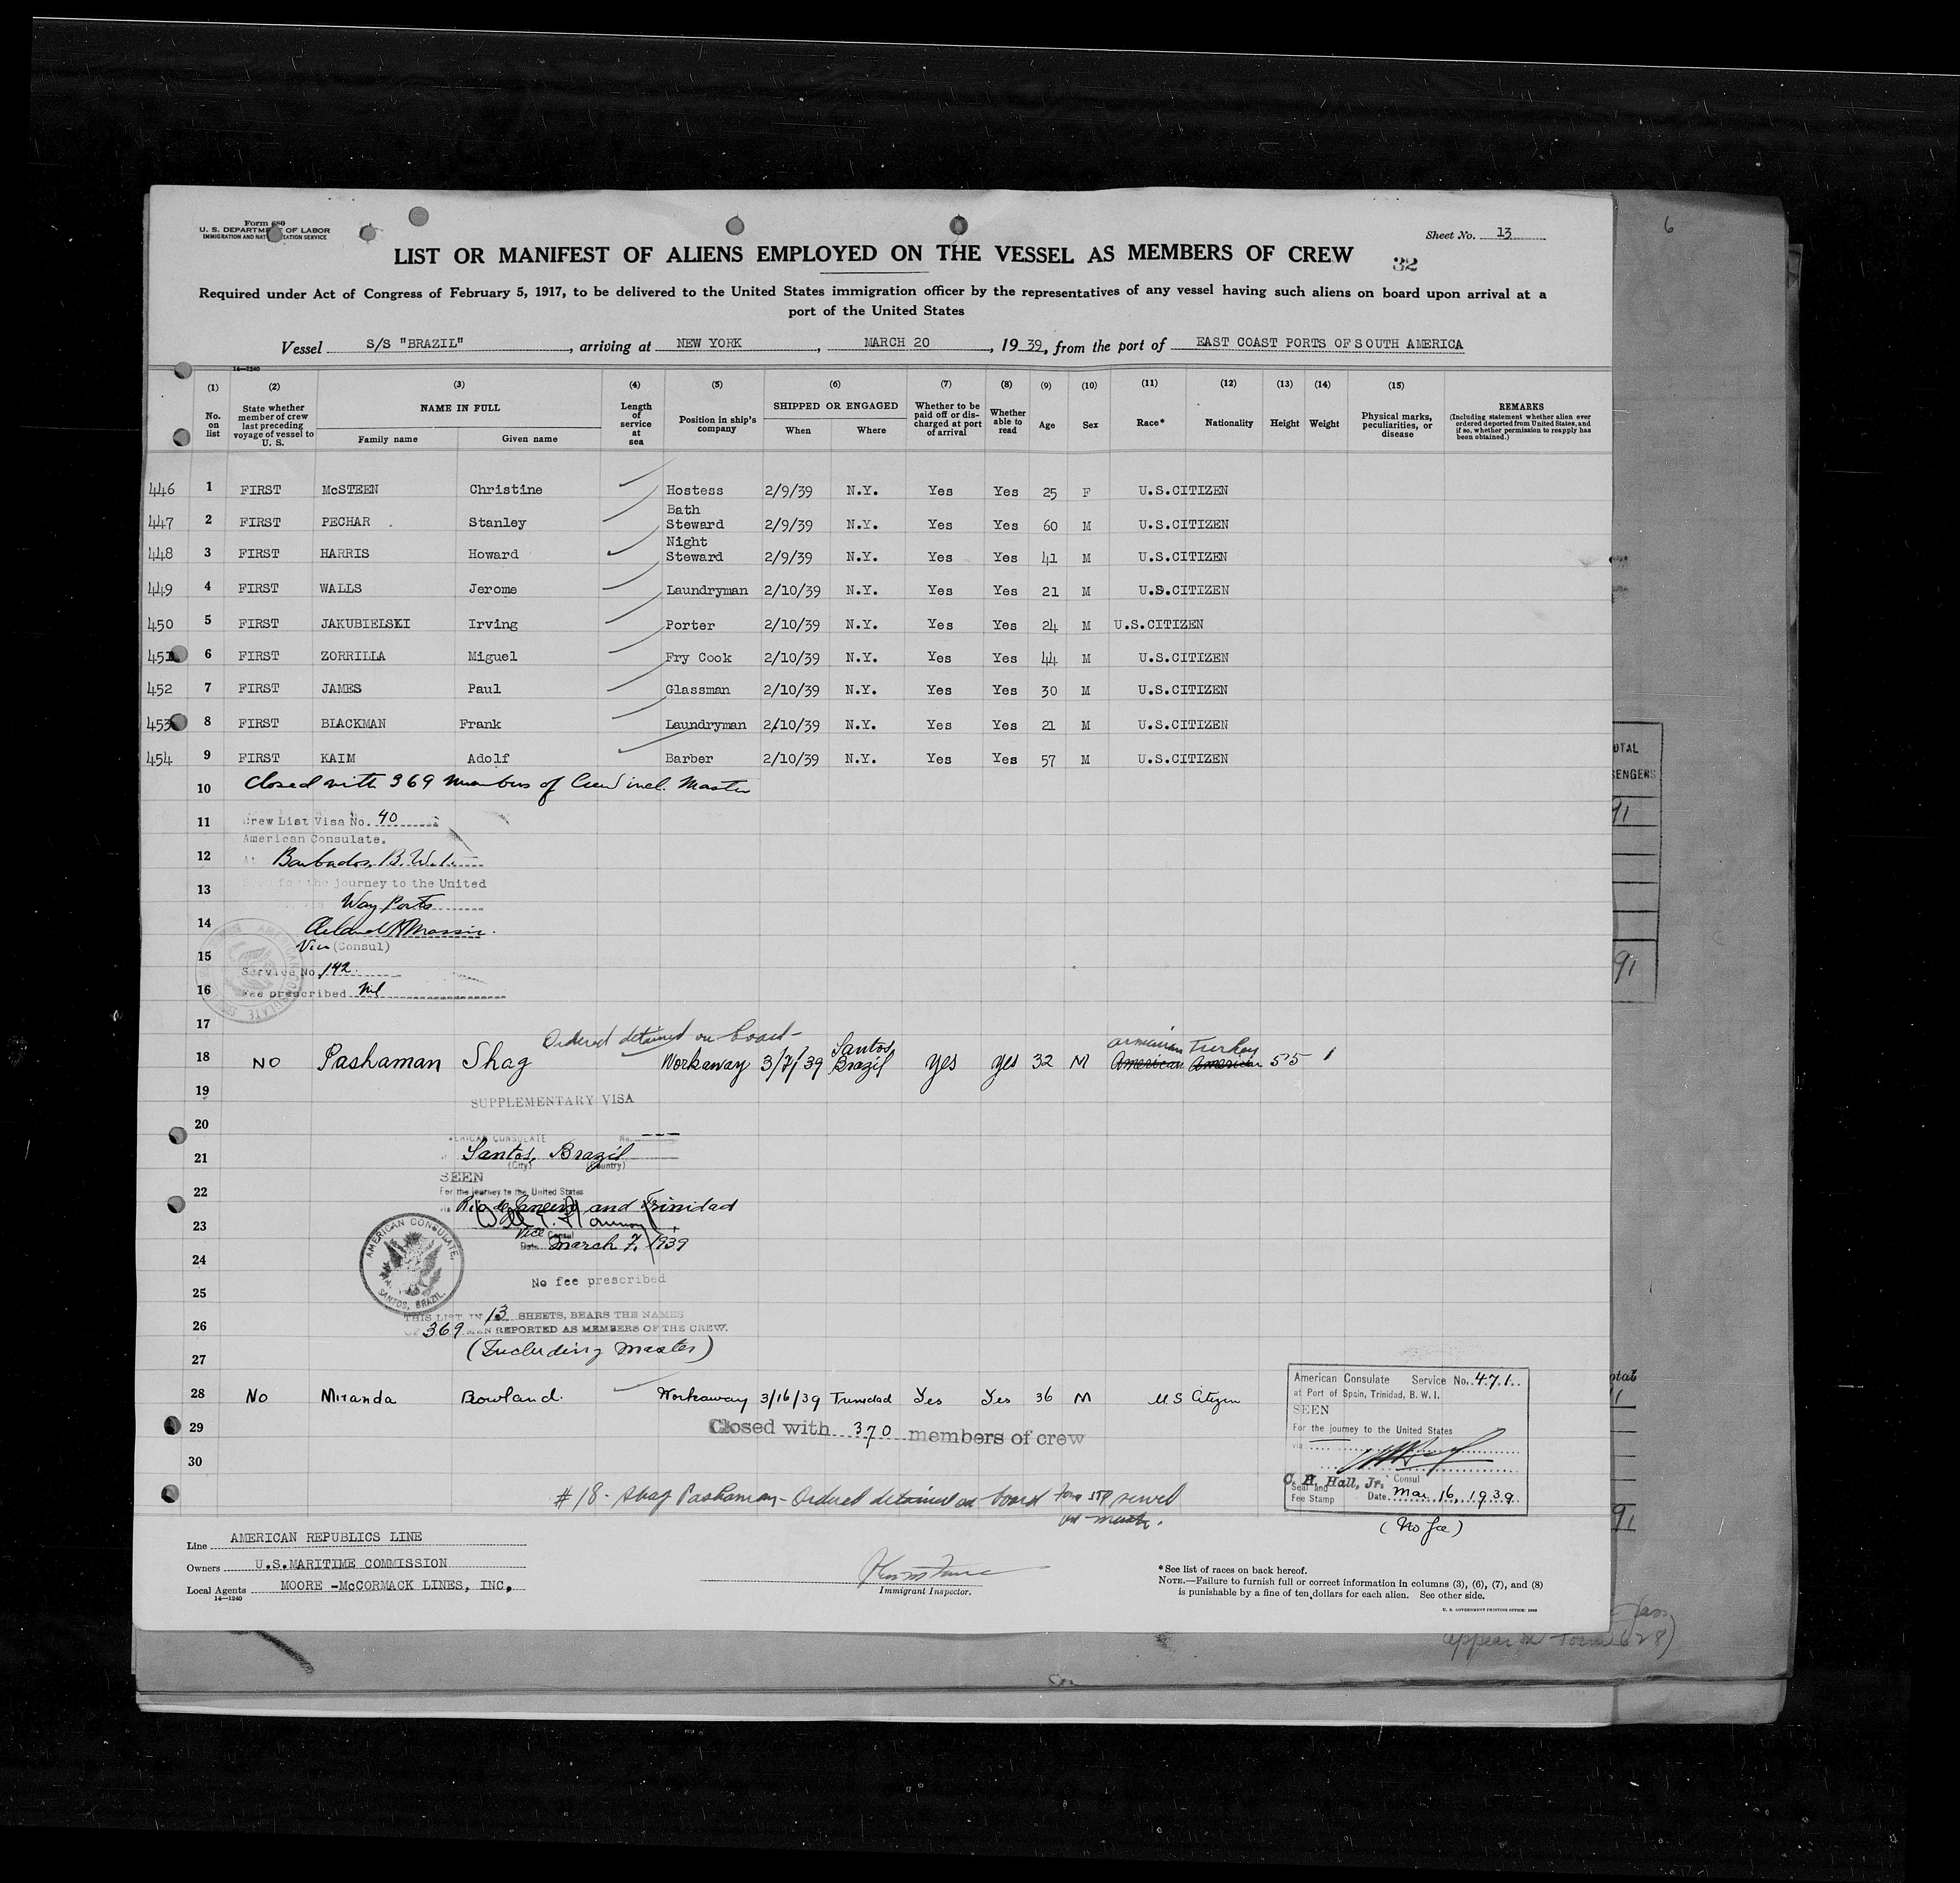 Form 680
U. S. DEPARTMENT OF LABOR
IMMIGRATION AND NATURALIZATION SERVICE
Sheet No. 13
6
LIST OR MANIFEST OF ALIENS EMPLOYED ON THE VESSEL AS MEMBERS OF CREW
32
Required under Act of Congress of February 5, 1917, to be delivered to the United States immigration officer by the representatives of any vessel having such aliens on board upon arrival at a
port of the United States
Vessel S/S "BRAZIL", arriving at NEW YORK, MARCH 20, 1939, from the port of EAST COAST PORTS OF SOUTH AMERICA
14—1240
(1) (2) (3) (4) (5) (6) (7) (8) (9) (10) (11) (12) (13) (14) (15)
No. on list
State whether member of crew last preceding voyage of vessel to U. S.
NAME IN FULL
Family name
Given name
Length of service at sea
Position in ship's company
SHIPPED OR ENGAGED
When
Where
Whether to be paid off or discharged at port of arrival
Whether able to read
Age
Sex
Race*
Nationality
Height
Weight
Physical marks, peculiarities, or disease
REMARKS
(Including statement whether alien ever ordered deported from United States, and if so, whether permission to reapply has been obtained.)
446 1 FIRST McSTEEN Christine Hostess 2/9/39 N.Y. Yes Yes 25 F U.S.CITIZEN
447 2 FIRST PECHAR Stanley Bath Steward 2/9/39 N.Y. Yes Yes 60 M U.S.CITIZEN
448 3 FIRST HARRIS Howard Night Steward 2/9/39 N.Y. Yes Yes 41 M U.S.CITIZEN
449 4 FIRST WALLS Jerome Laundryman 2/10/39 N.Y. Yes Yes 21 M U.S.CITIZEN
450 5 FIRST JAKUBIELSKI Irving Porter 2/10/39 N.Y. Yes Yes 24 M U.S.CITIZEN
451 6 FIRST ZORRILLA Miguel Fry Cook 2/10/39 N.Y. Yes Yes 44 M U.S.CITIZEN
452 7 FIRST JAMES Paul Glassman 2/10/39 N.Y. Yes Yes 30 M U.S.CITIZEN
453 8 FIRST BLACKMAN Frank Laundryman 2/10/39 N.Y. Yes Yes 21 M U.S.CITIZEN
454 9 FIRST KAIM Adolf Barber 2/10/39 N.Y. Yes Yes 57 M U.S.CITIZEN
10 Closed with 369 Members of Crew incl. Master
11 Crew List Visa No. 40
American Consulate.
12 At Barbados, B.W.I.
13 for the journey to the United
Way Ports
14
15 Vice (Consul)
Service No. 142
16 Fee prescribed Nil
17
Ordered detained on board
18 NO Pashaman Shag Workaway 3/7/39 Santos Brazil Yes Yes 32 M Armenian American Turkey American 5'5"
19
SUPPLEMENTARY VISA
20
AMERICAN CONSULATE No. ---
21 Santos, Brazil
(City) (Country)
SEEN
22 For the journey to the United States
via Rio de Janeiro and Trinidad
23
Vice Consul
Date March 7, 1939
24
AMERICAN CONSULATE, SANTOS, BRAZIL.
No fee prescribed
25
THIS LIST IN 13 SHEETS, BEARS THE NAMES
26 OF 369 MEN REPORTED AS MEMBERS OF THE CREW.
(Including Master)
27
28 No Miranda Rowland. Workaway 3/16/39 Trinidad Yes Yes 36 M U S Citizen
29 Closed with 370 members of crew
30
American Consulate Service No. 471
at Port of Spain, Trinidad, B. W. I.
SEEN
For the journey to the United States
via
C. H. Hall, Jr. Consul
Seal and
Fee Stamp Date Mar 16, 1939
(No fee)
#18 - Shag Pashaman - Ordered detained on board
Line AMERICAN REPUBLICS LINE
Owners U.S.MARITIME COMMISSION
Local Agents MOORE -McCORMACK LINES, INC.
14—1240
Immigrant Inspector.
*See list of races on back hereof.
NOTE.—Failure to furnish full or correct information in columns (3), (6), (7), and (8)
is punishable by a fine of ten dollars for each alien. See other side.
U. S. GOVERNMENT PRINTING OFFICE
OTAL
SENGERS
91
91
otal
91
appear on Form 628)